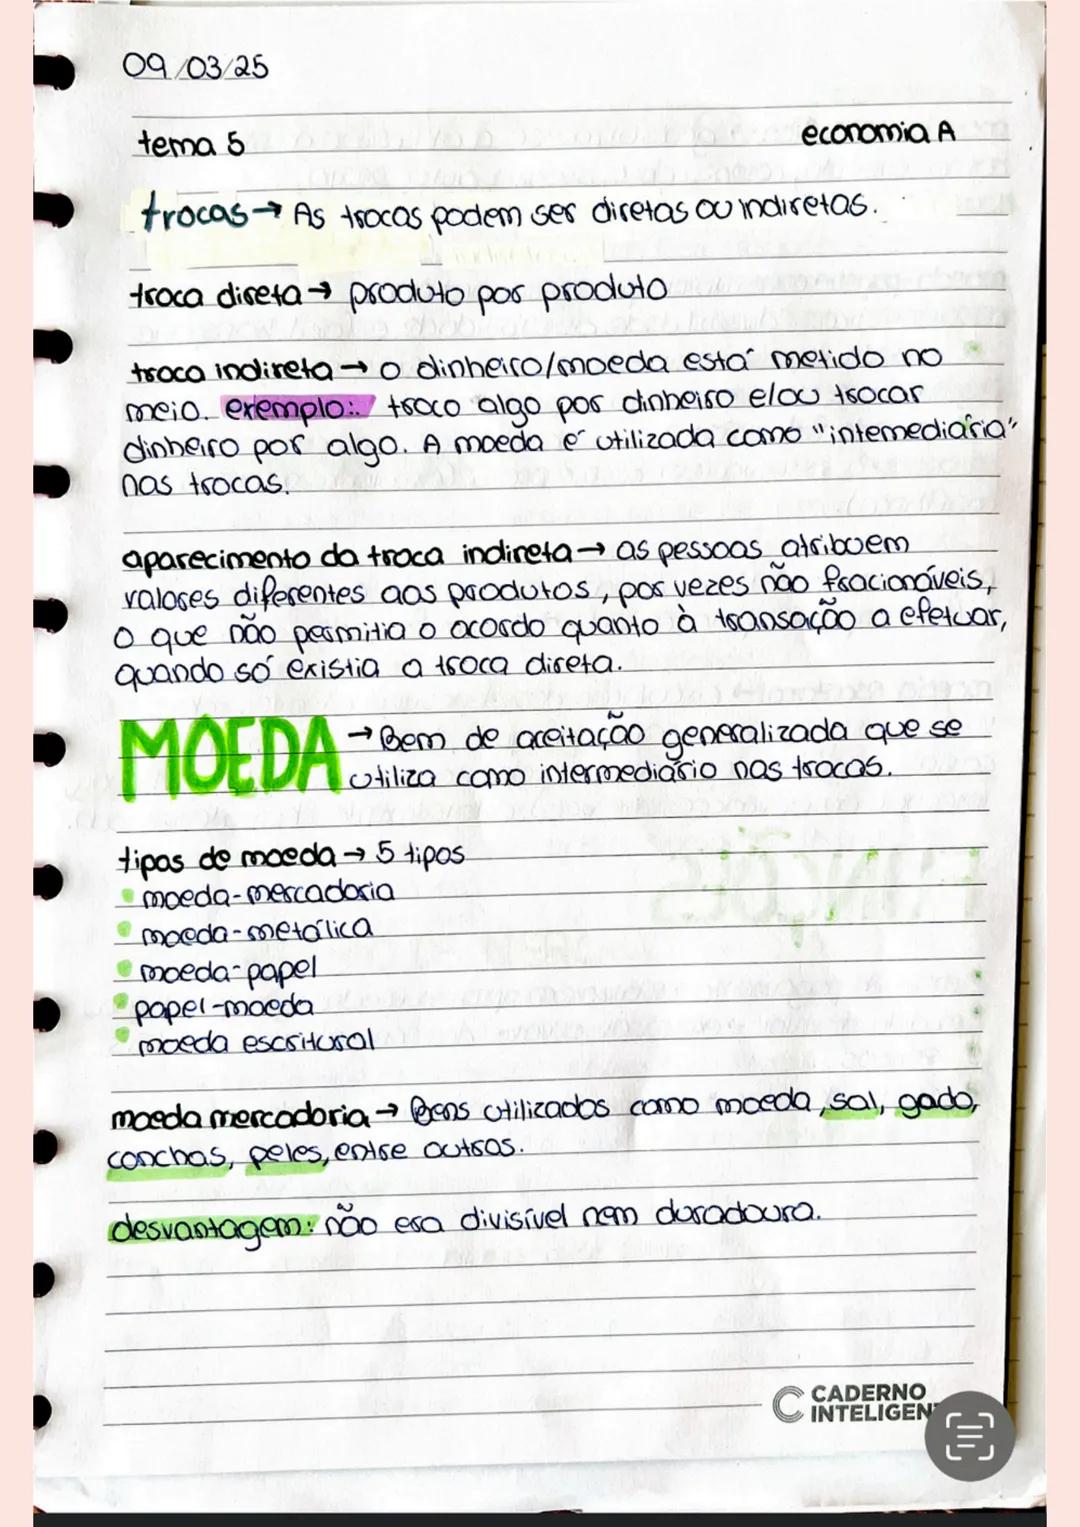 09/03/25
tema 5 economia A
trocas → As trocas podem ser diretas ou indiretas.
troca direta → produto por produto
troca indireta → o dinheiro/moeda está metido no
meio. exemplo: troco algo por dinheiro e/ou trocar
dinheiro por algo. A moeda é utilizada como "intemediária"
nas trocas.
aparecimento da troca indireta → as pessoas atribuem
valores diferentes aos produtos, por vezes não fracionáveis,
o que não permitia o acordo quanto à transação a efetuar,
quando só existia a troca direta.
MOEDA → Bem de aceitação generalizada que se
utiliza como intermediário nas trocas.
tipos de moeda → 5 tipos
• moeda-mercadoria
• moeda-metálica
• moeda-papel
• papel-moeda
• moeda escritural
moeda mercadoria → Bens utilizados como moeda, sal, gado,
conchas, peles, entre outras.
desvantagem: não era divisível nem duradoura.
CADERNO